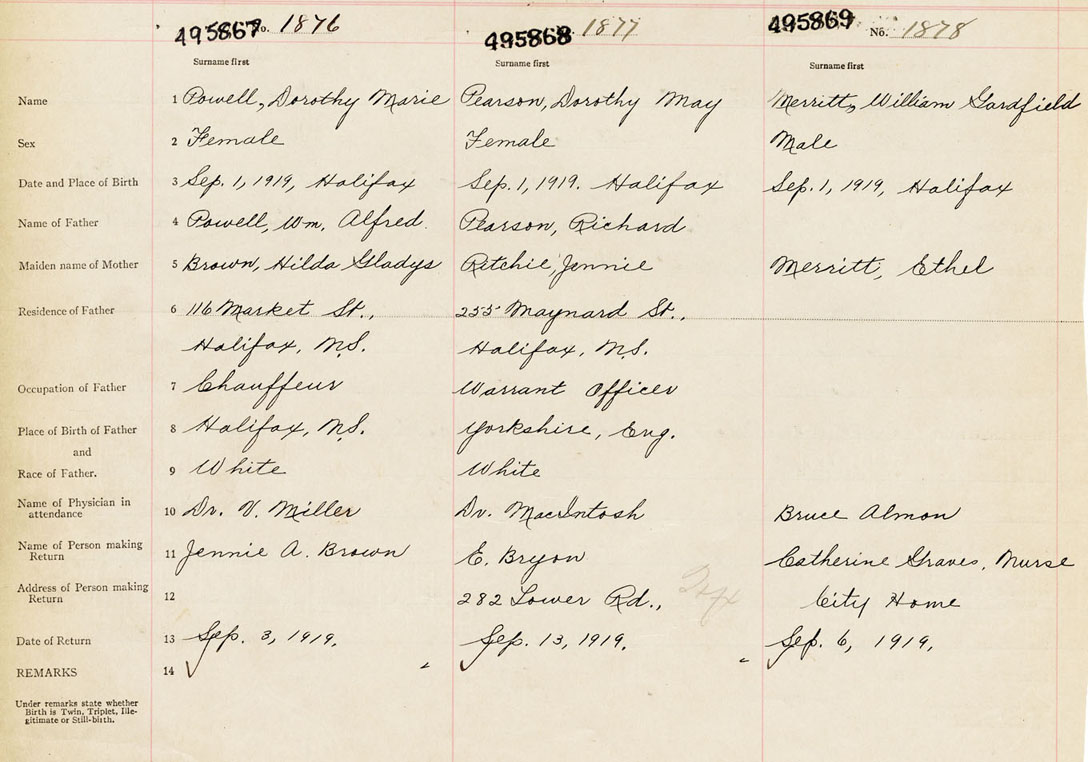 495867 No. 1876 495868 1877 495869 No. 1878
Surname first Surname first Surname first
Name 1 Powell, Dorothy Marie Pearson, Dorothy May Merritt, William Gardfield
Sex 2 Female Female Male
Date and Place of Birth 3 Sep. 1, 1919, Halifax Sep. 1, 1919. Halifax Sep. 1, 1919, Halifax
Name of Father 4 Powell, Wm. Alfred. Pearson, Richard
Maiden name of Mother 5 Brown, Hilda Gladys Ritchie, Jennie Merritt, Ethel
Residence of Father 6 116 Market St., 255 Maynard St.,
Halifax, N.S. Halifax, N.S.
Occupation of Father 7 Chauffeur Warrant Officer
Place of Birth of Father 8 Halifax, N.S. Yorkshire, Eng.
and
Race of Father. 9 White White
Name of Physician in
attendance 10 Dr. V. Miller Dr. MacIntosh Bruce Almon
Name of Person making
Return 11 Jennie A. Brown E. Bryon Catherine Graves, Nurse
Address of Person making
Return 12 282 Lower Rd., City Home
Date of Return 13 Sep. 3, 1919. Sep. 13, 1919. Sep. 6, 1919.
REMARKS 14
Under remarks state whether
Birth is Twin, Triplet, Ille-
gitimate or Still-birth.